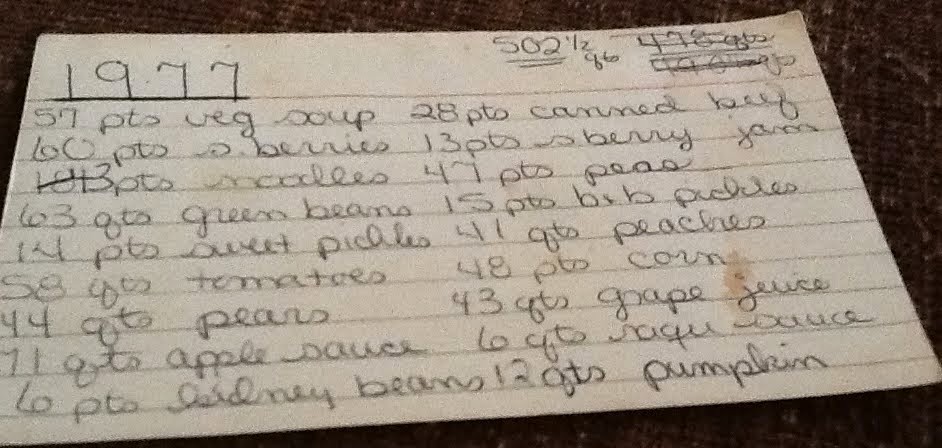 1977 502 1/2 qts 478 qts
57 pts veg soup 28 pts canned beef
60 pts s. berries 13 pts s berry jam
13 pts noodles 47 pts peas
63 qts green beans 15 pts b+b pickles
14 pts sweet pickles 41 qts peaches
58 qts tomatoes 48 pts corn
44 qts pears 43 qts grape jeuice
71 qts apple sauce 6 qts ragu sauce
6 pts kidney beans 12 qts pumpkin